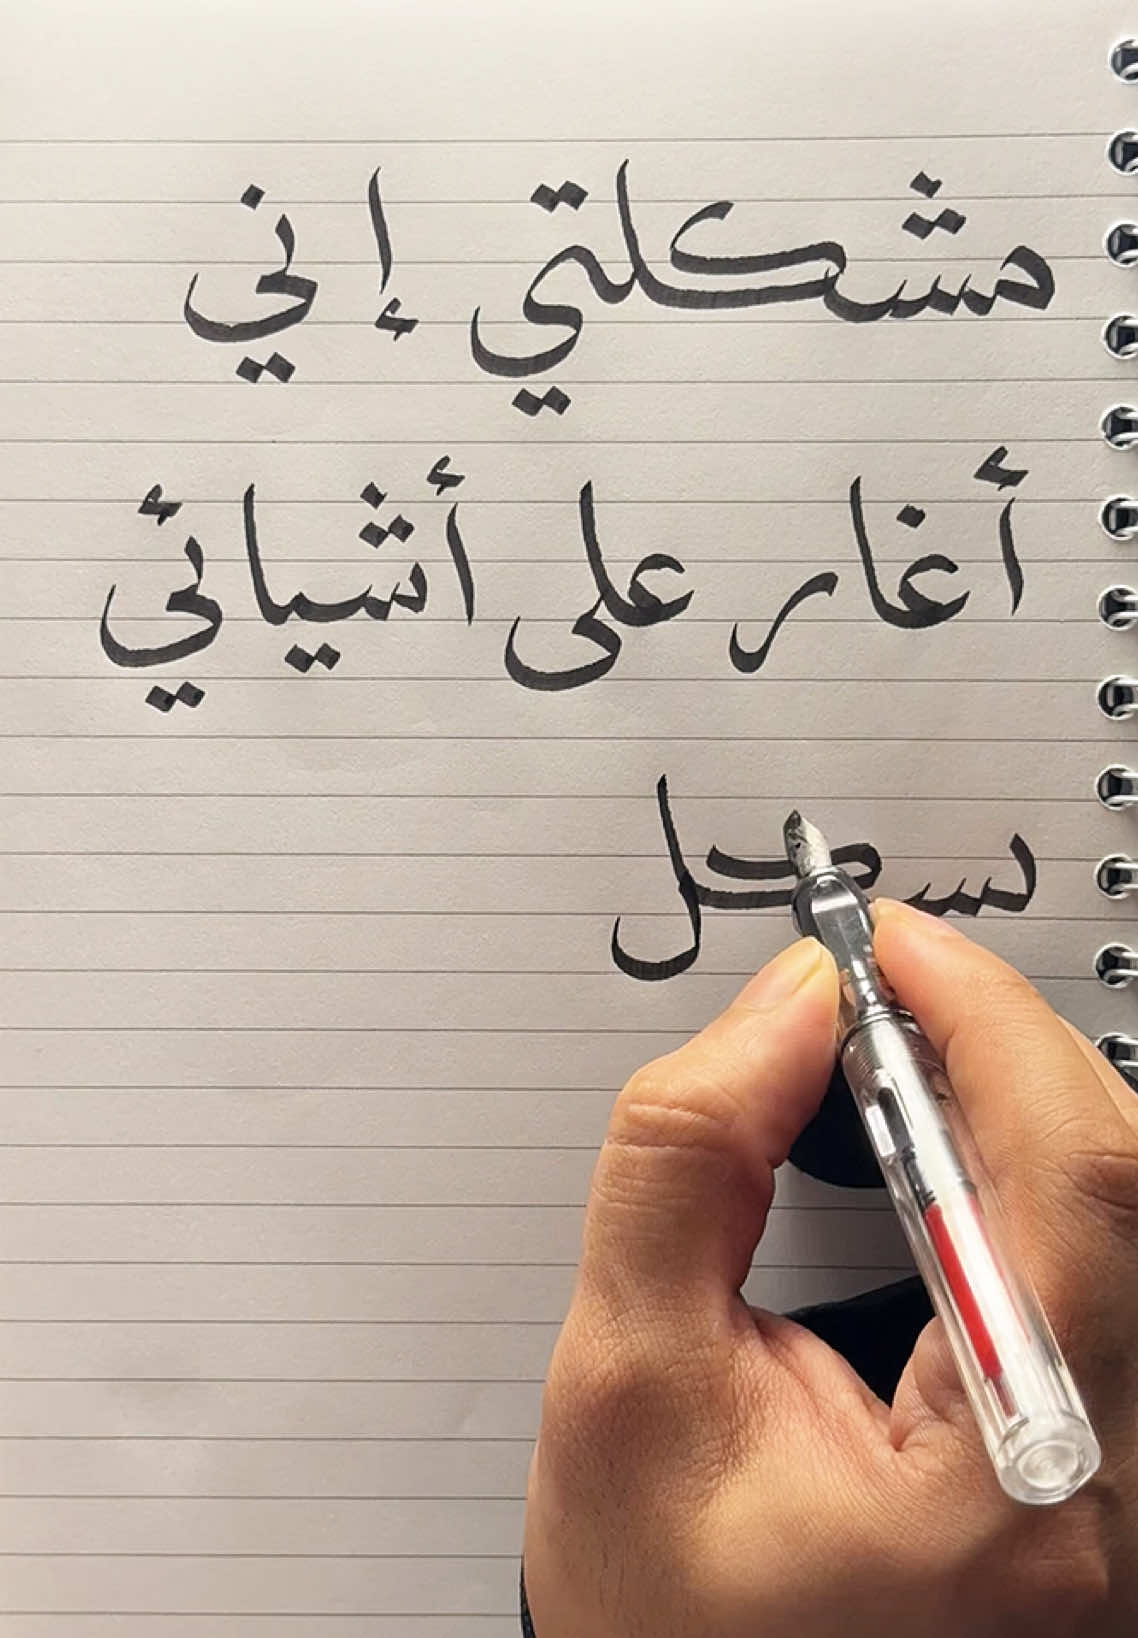 مشكلتي إني
أغار على أشيائي
بشكل